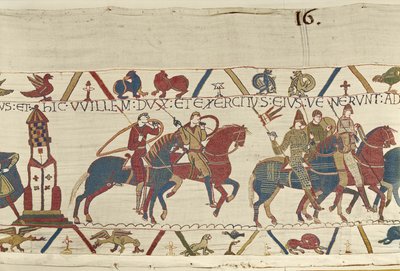 16.
VS: ET: hIC: VVILLEM: DVX: ET EXERCITVS: EIVS: VENERVNT: AD